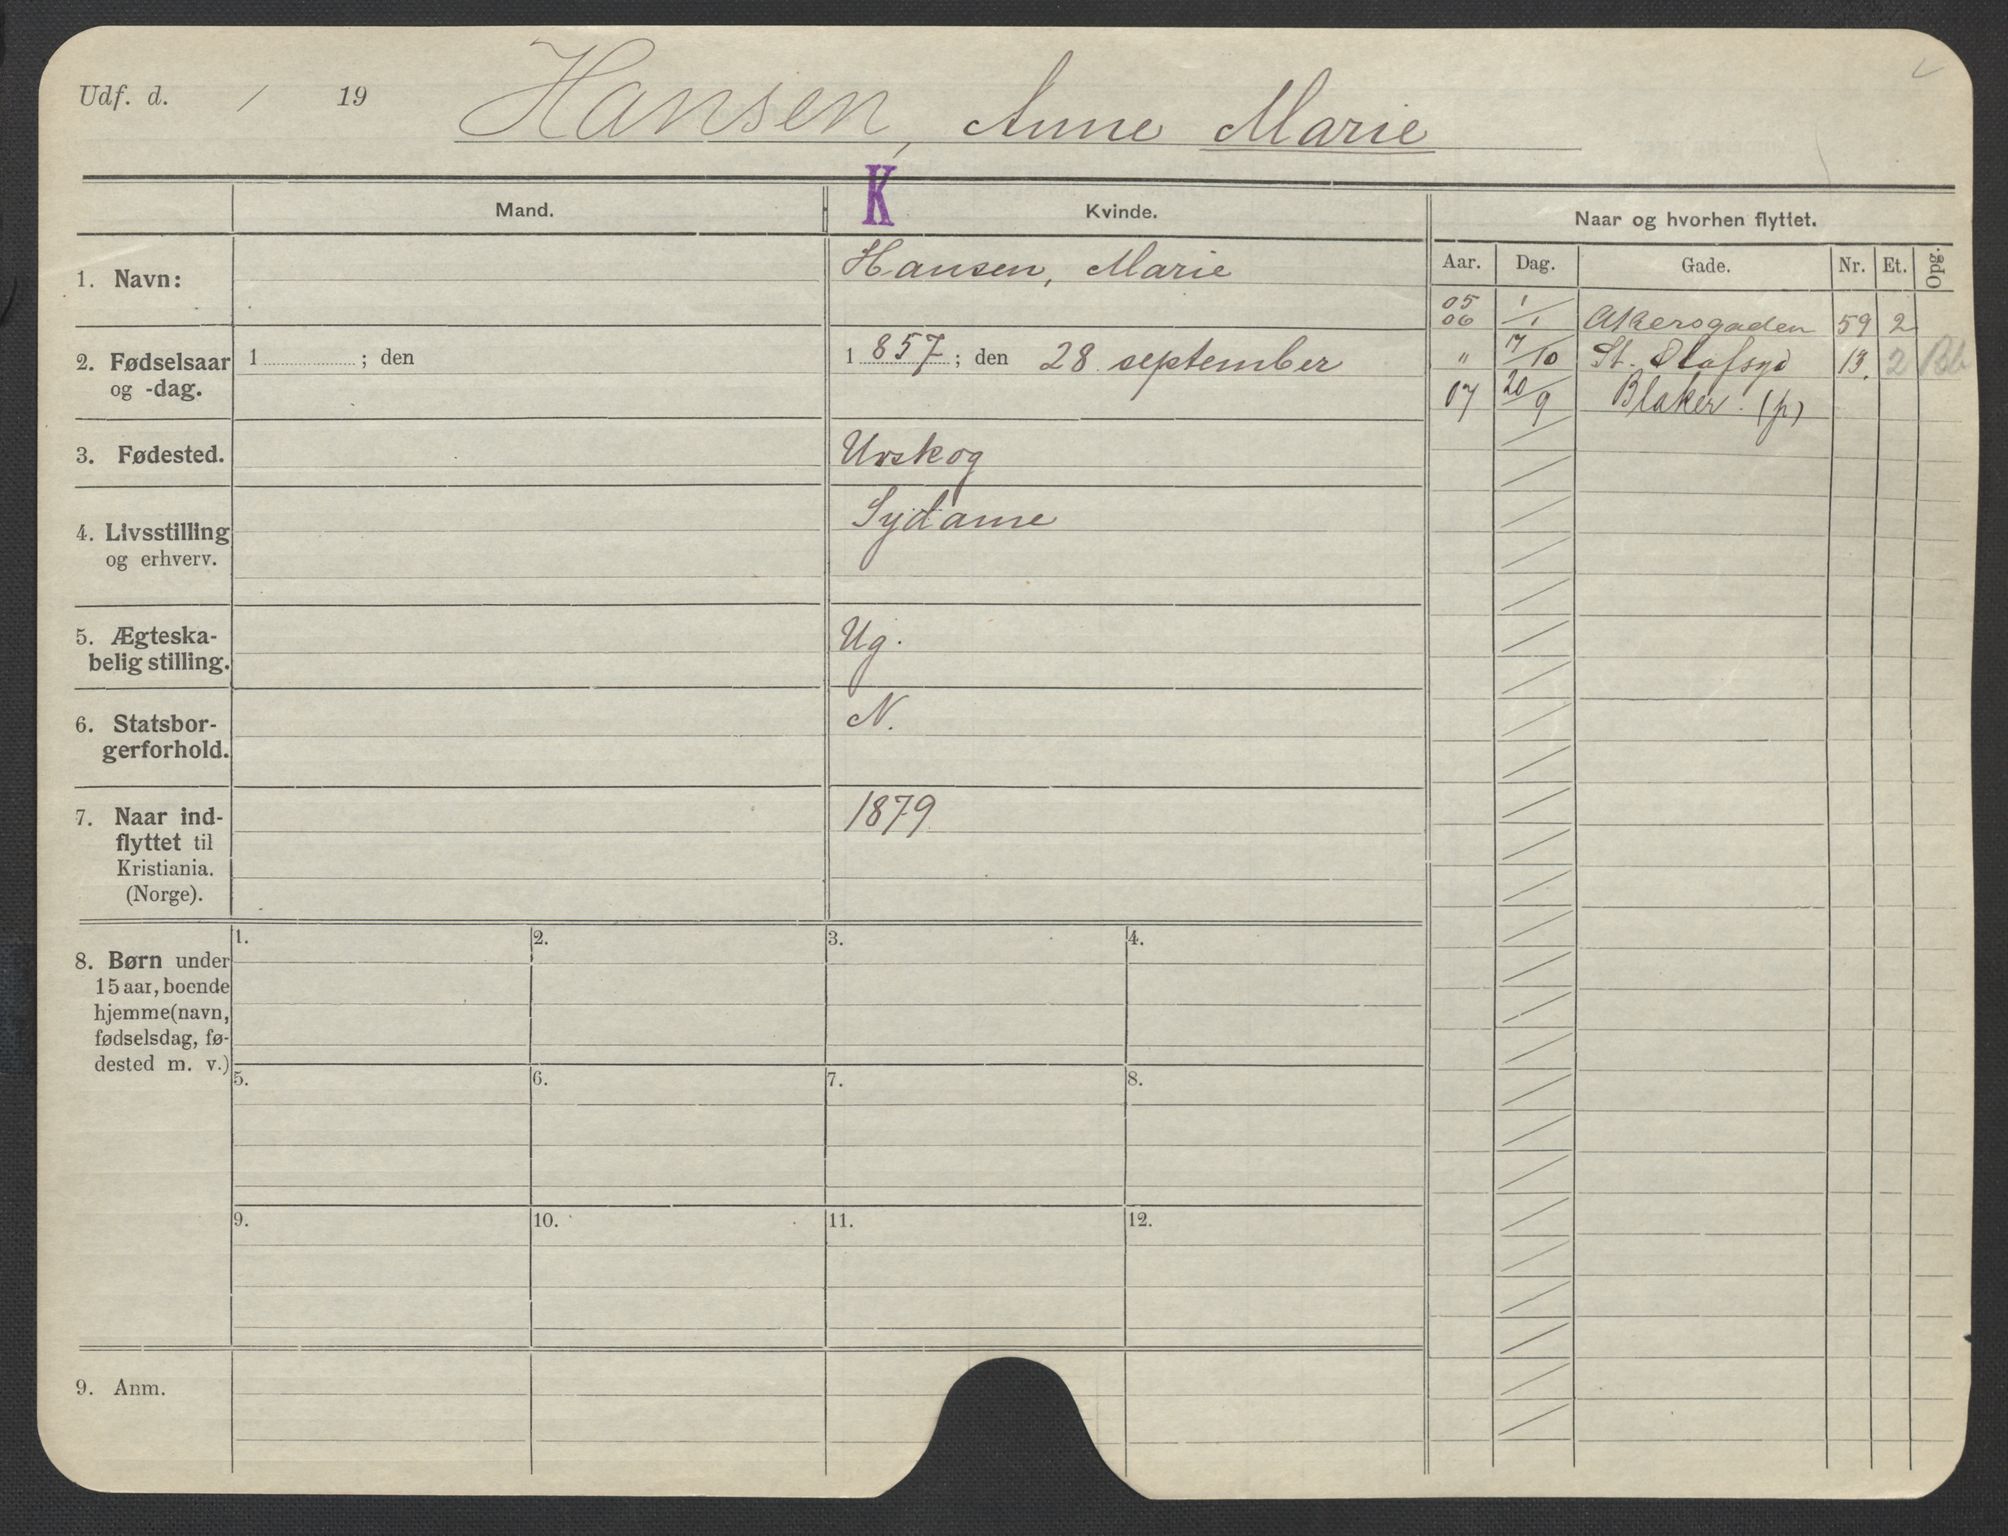 Udf. d. / 19 Hansen, Anne Marie
K
Mand. Kvinde. Naar og hvorhen flyttet.
Aar. Dag. Gade. Nr. Et. Opg.
1. Navn: Hansen, Marie
05 06 1/1 Akersgaden 59 2
2. Fødselsaar og -dag. 1 ; den 1 857 ; den 28 september
" 7/10 St. Olafsgd 13. 2 Bb
07 20/9 Blaker (p)
3. Fødested. Urskog
4. Livsstilling og erhverv. Sydame
5. Ægteska-
belig stilling. Ug.
6. Statsbor-
gerforhold. N.
7. Naar ind- 1879
flyttet til
Kristiania.
(Norge).
8. Børn under
15 aar, boende
hjemme (navn,
fødselsdag, fø-
dested m. v.)
1. 2. 3. 4.
5. 6. 7. 8.
9. 10. 11. 12.
9. Anm.